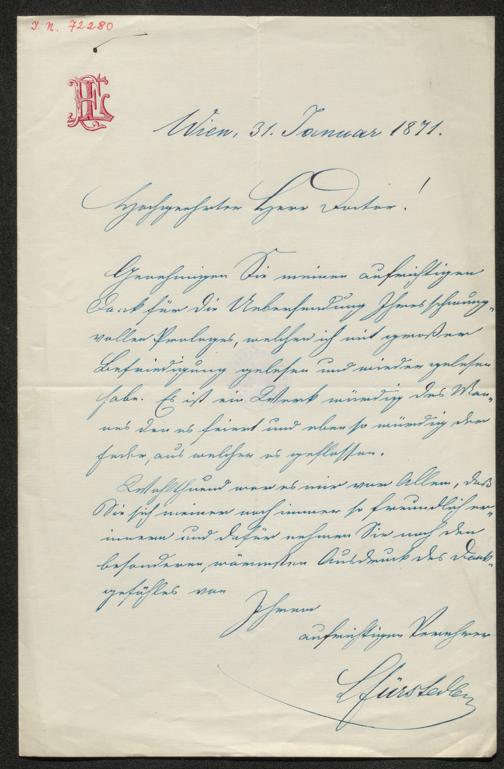 J. N. 72280
Wien, 31. Januar 1871.
Hochgeehrter Herr Doctor!
Genehmigen Sie meinen aufrichtigen
Dank für die Uebersendung Ihres schwung-
voller Prologes, welchen ich mit großer
Befriedigung gelesen und wieder gelesen
habe. Es ist ein Werk würdig des Man-
nes den es feiert und eben so würdig der
Feder, aus welcher es geflossen.
Wohlthuend war es mir vor Allem, daß
Sie sich meiner noch immer so freundlich er-
innern und dafür nehmen Sie noch den
besonderen, wärmsten Ausdruck des Dank-
gefühles von
Ihrem
aufrichtigen Verehrer
LFürstedler